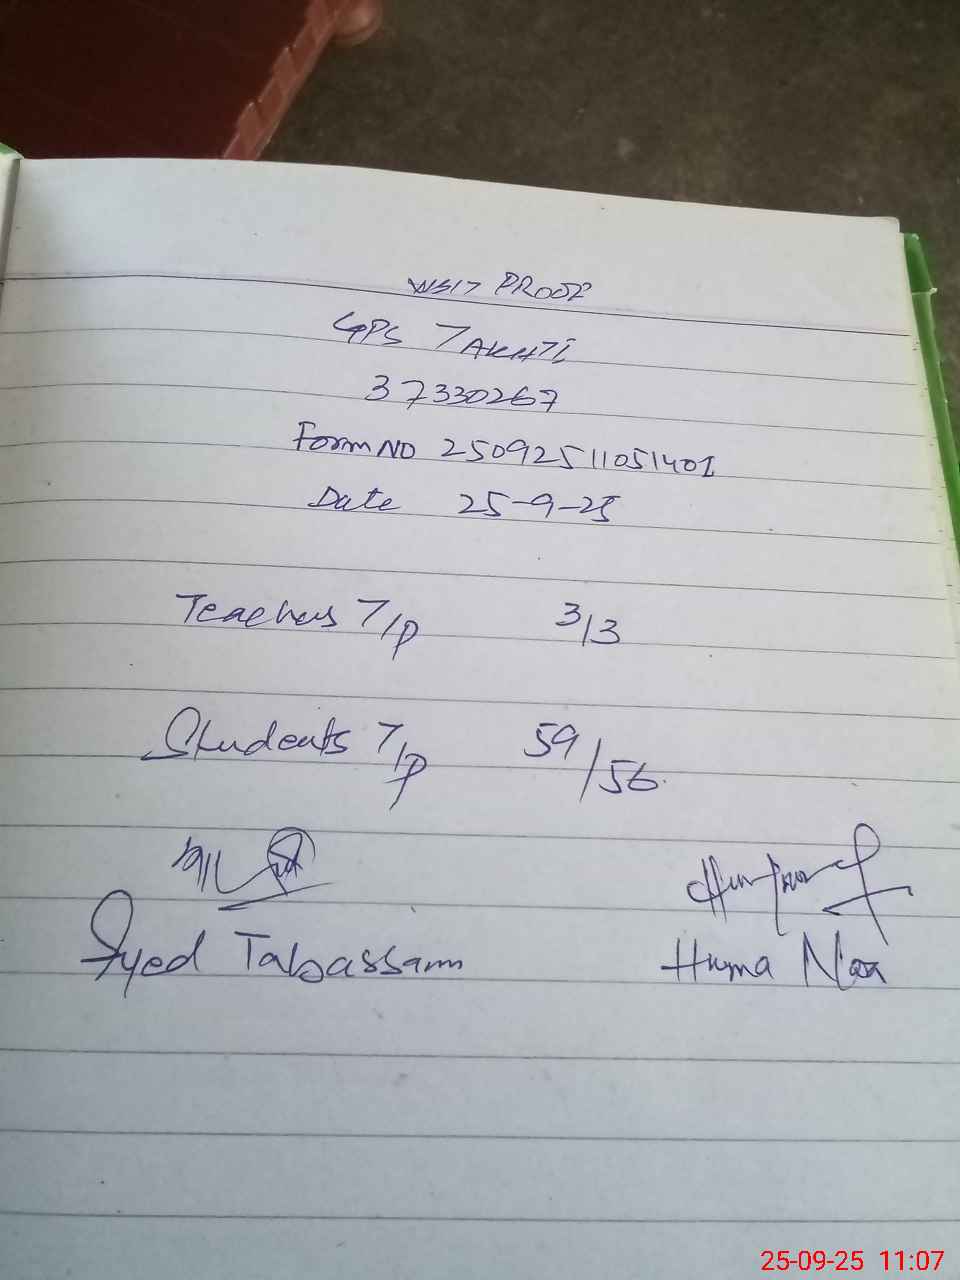 VISIT PROOF
GPS TAKHTI
37330267
Form NO 25092511051401
Date 25-9-25
Teachers T/P 3/3
Students T/P 59/56
Syed Tabassam Huma Naz
25-09-25 11:07